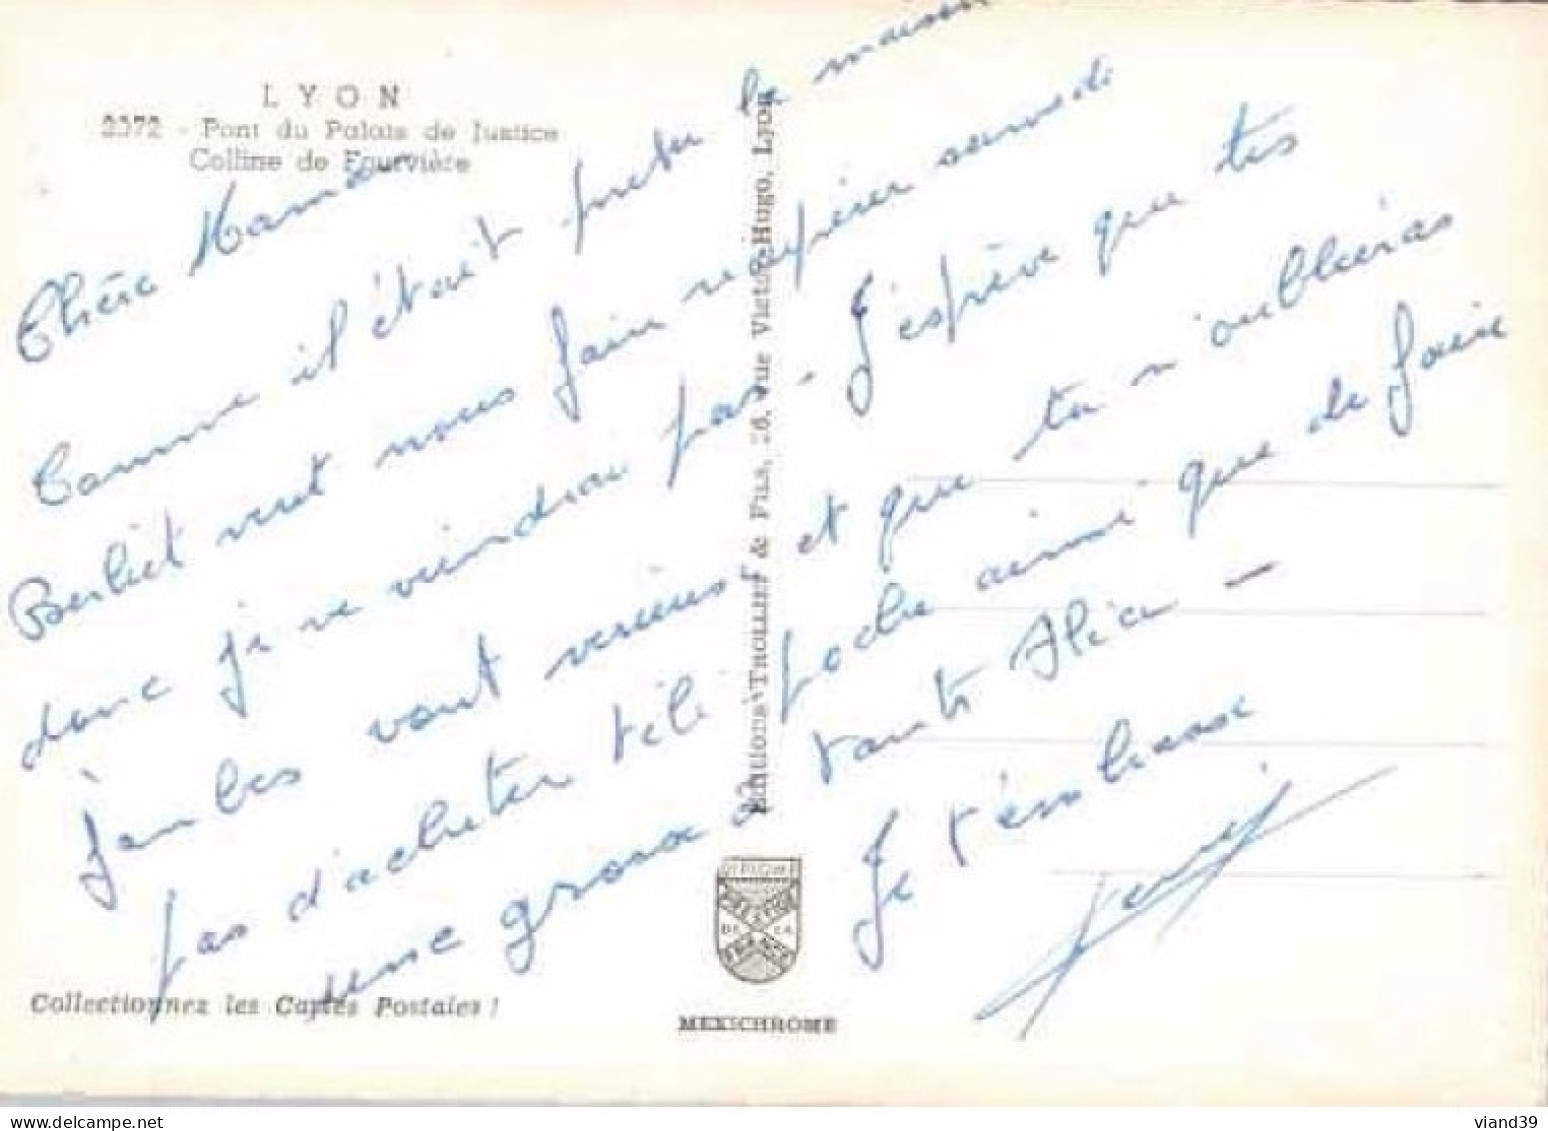 LYON
2372 - Pont du Palais de Justice
Colline de Fourvière
Chère Maman
Comme il était preter la maison
Berliet veut nous faire récupérer samedi
donc je ne viendrai pas - J'esprève que tes
jambes vont mieux et que tu n'oublieras
pas d'acheter télé poche ainsi que de faire
une grosse à tante Alice -
Je t'embrasse
Collectionnez les Cartes Postales !
Editions TROLLIET & FILS, 26, rue Victor-Hugo, Lyon
PRESTIGE
DE LA
FRANCE
MEXICHROME
viand39